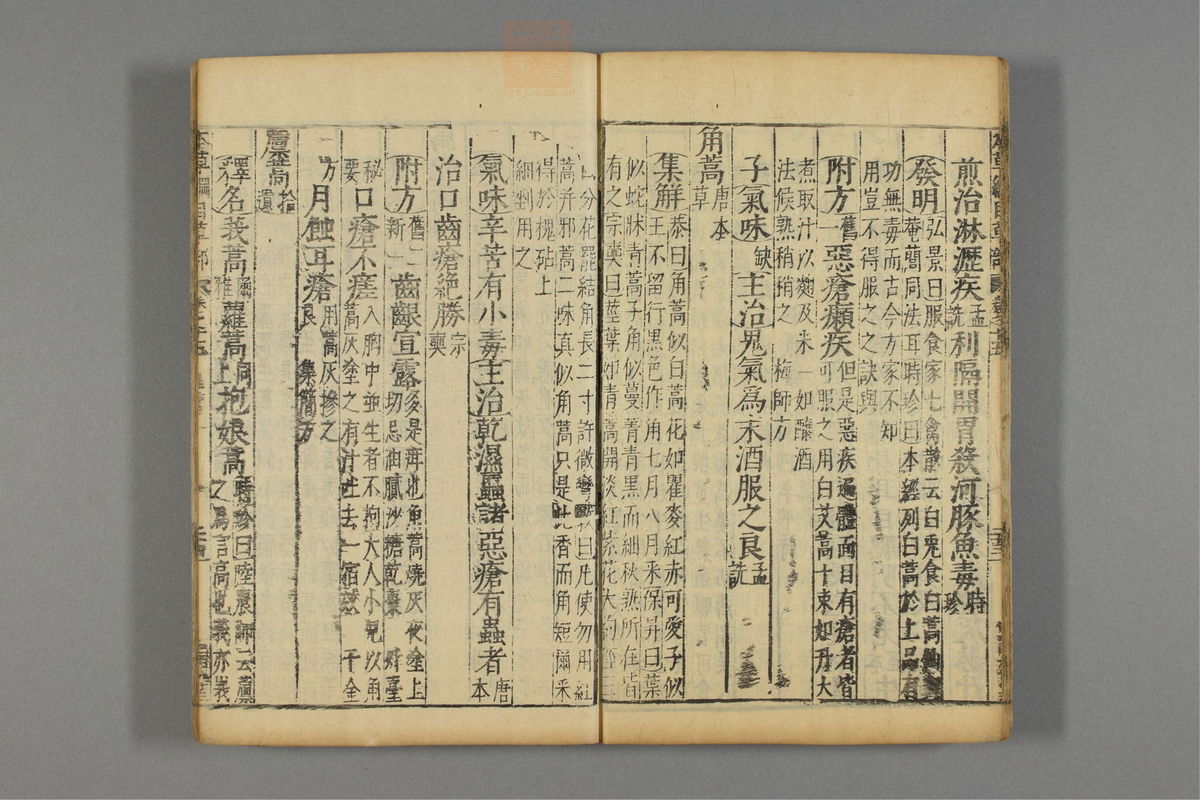 煎治淋瀝疾孟詵利膈開胃殺河豚魚毒時珍
發明弘景曰服食家七禽散云白兎食白蒿
菴䕡同法耳時珍曰本經列白蒿於上品有
功無毒而古今方家不知
用豈不得服之之訣與
附方舊一惡瘡癩疾但是惡疾遍體面目有瘡者皆
可服之用白艾蒿十束如升大
煮取汁以麴及米一如釀酒
法候熟稍稍之梅師方
子氣味缺主治鬼氣為末酒服之良孟詵
角蒿唐本草
集解恭曰角蒿似白蒿花如瞿麥紅赤可愛子似
王不留行黑色作角七月八月采保昇曰葉
似蛇牀青蒿子角似蔓菁青黑而細秋熟所在皆
有之宗奭曰莖葉如青蒿開淡紅紫花大約徑三
四分花罷結角長二寸許微彎曰凡使勿用紅
蒿并邪蒿二味真似角蒿只是此香而角短爾采
得於槐砧上
細剉用之
氣味辛苦有小毒主治乾濕䘌諸惡瘡有蟲者唐本
治口齒瘡絶勝宗奭
附方舊二新一齒齦宣露多是疳也角蒿燒灰夜塗上
切忌油膩沙糖乾棗外臺
秘要口瘡不瘥入胸中並生者不拘大人小兒以角
蒿灰塗之有汁吐去一宿效千金
方月蝕耳瘡用蒿灰摻之
良集簡方
䕡蒿拾遺
釋名莪蒿爾雅蘿蒿同上抱娘蒿時珍曰陸農師云
之為言高也莪亦峩